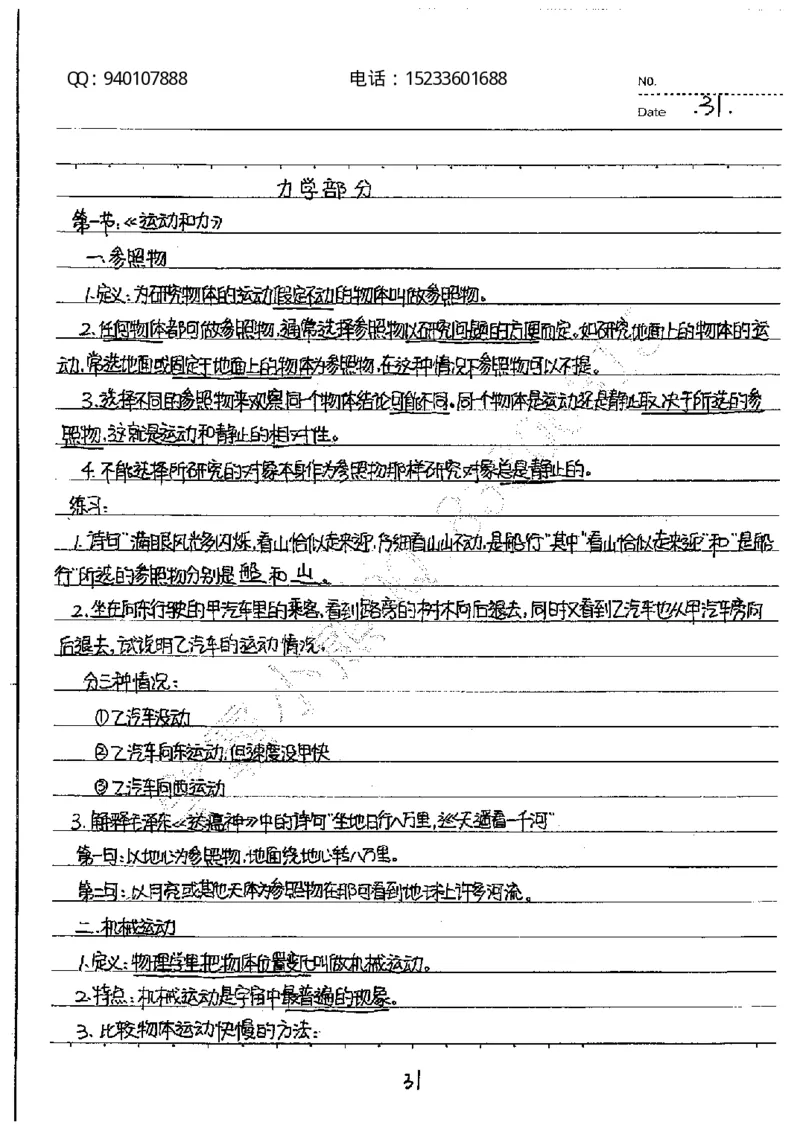 QQ：940107888 电话：15233601688 NO.
Date 31.
力学部分
第一节：《运动和力》
一、参照物
1.定义：为研究物体的运动假定不动的物体叫做参照物。
2.任何物体都可做参照物，通常选择参照物以研究问题的方便而定。如研究地面上的物体的运
动，常选地面或固定于地面上的物体为参照物，在这种情况下参照物可以不提。
3.选择不同的参照物来观察同一个物体结论可能不同。同一个物体是运动还是静止取决于所选的参
照物，这就是运动和静止的相对性。
4.不能选择所研究的对象本身作为参照物那样研究对象总是静止的。
练习：
1.诗句“满眼风光多闪烁，看山恰似走来迎，仔细看山山不动，是船行”其中“看山恰似走来迎”和“是船
行”所选的参照物分别是船和山。
2.坐在向东行驶的甲汽车里的乘客，看到路旁的树木向后退去，同时又看到乙汽车也从甲汽车旁向
后退去，试说明乙汽车的运动情况。
分三种情况：
①乙汽车没动
②乙汽车向东运动，但速度没甲快
③乙汽车向西运动
3.解释毛泽东《送瘟神》中的诗句“坐地日行八万里，巡天遥看一千河”
第一句：以地心为参照物，地面绕地心转八万里。
第二句：以月亮或其他天体为参照物在那可看到地球上许多河流。
二、机械运动
1.定义：物理学里把物体位置变化叫做机械运动。
2.特点：机械运动是宇宙中最普遍的现象。
3.比较物体运动快慢的方法：
31